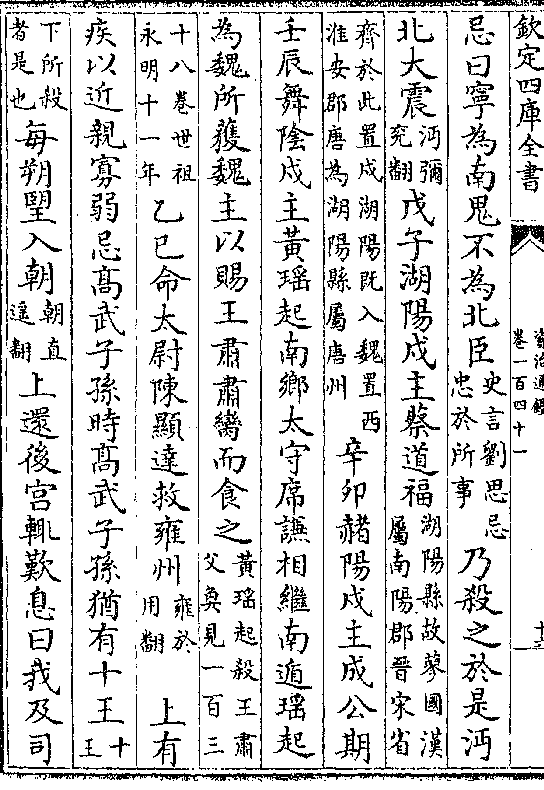 欽定四庫全書
資治通鑑
卷一百四十一
忌曰寧為南鬼不為北臣史言劉思忌忠於所事乃殺之於是沔
北大震沔彌兗翻戊子湖陽戍主蔡道福湖陽縣故蓼國漢屬南陽郡晉宋省
齊於此置戍湖陽既入魏置西淮安郡唐為湖陽縣屬唐州辛卯赭陽戍主成公期
壬辰舞陰戍主黃瑶起南鄉太守席謙相繼南遁瑶起
為魏所獲魏主以賜王肅肅臠而食之黃瑶起殺王肅父奐見一百三
十八卷世祖永明十一年乙巳命太尉陳顯達救雍州雍於用翻上有
疾以近親寡弱忌髙武子孫時髙武子孫猶有十王十王
下所殺者是也每朔朢入朝朝直遥翻上還後宮輒歎息曰我及司